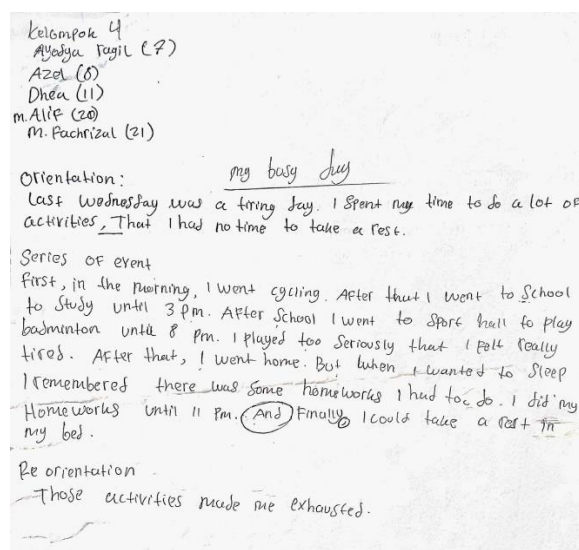 Kelompok 4
Ayasya ragil (7)
Azel (8)
Dhea (11)
m. Alif (20)
m. Fachrizal (21)
my busy day
Orientation:
Last Wednesday was a tiring day. I spent my time to do a lot of
activities, That I had no time to take a rest.
Series of event
first, in the morning, I went cycling. After that I went to School
to Study until 3 pm. After School I went to Sport hall to play
badminton until 8 pm. I played too Seriously that I felt really
tired. After that, I went home. But when I wanted to Sleep
I remembered there was Some homeworks I had to do. I did my
Homeworks until 11 pm. And Finally, I could take a rest in
my bed.
Re orientation
Those activities made me exhausted.